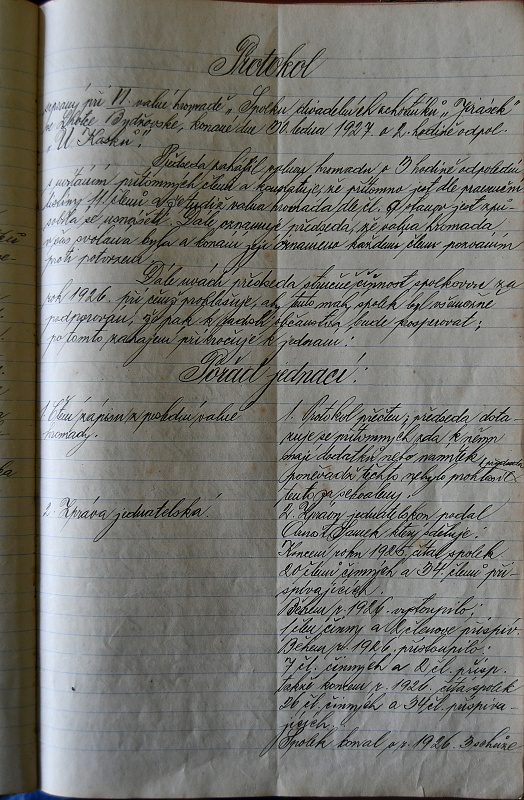 Protokol
sepsaný při VI. valné hromadě „Spolku divadelních ochotníků „Jirásek“
ve Lhotce Bydžovské, konané dne 30. ledna 1927 o 2. hodině odpol.
„U Kasků“.
Předseda zahájil valnou hromadu o 3 hodině odpolední
s uvítáním přítomných členů a konstatuje, že přítomno jest dle presenční
listiny 11 členů a že tudíž valná hromada dle čl. stanov jest způ-
sobilá se usnášeti. Dále oznamuje předseda, že valná hromada
včas svolána byla a konání její oznámeno každému členu pozváním
proti potvrzení.
Dále uvádí předseda stručně činnost spolkovou za
rok 1926. při čemž prohlašuje, aby tento malý spolek byl všemožně
podporován, že pak k radosti občanstva bude prosperovat;
po tomto zahájení přikročuje k jednání:
Pořad jednací:
1. Čtení zápisu z poslední valné
hromady.
1. Protokol přečten; předseda dota-
zuje se přítomných zda k němu
mají dodatků nebo námitek
poněvadž těchto nebylo prohlásil předseda
tento za schválený.
2. Zpráva jednatelská.
2. Zprávu jednatelskou podal
Vanek který sděluje:
Koncem roku 1925 čítal spolek
20 členů činných a 34 členů při-
spívajících.
Během r. 1926 vystoupilo:
1 člen činný a 2 členové přispív.
Během r. 1926. přistoupilo:
7 čl. činných a 2 čl. přisp.
takže koncem r. 1926. čítá spolek
26 čl. činných a 34 čl. přispíva-
jících.
Spolek konal v r. 1926. 3 schůze